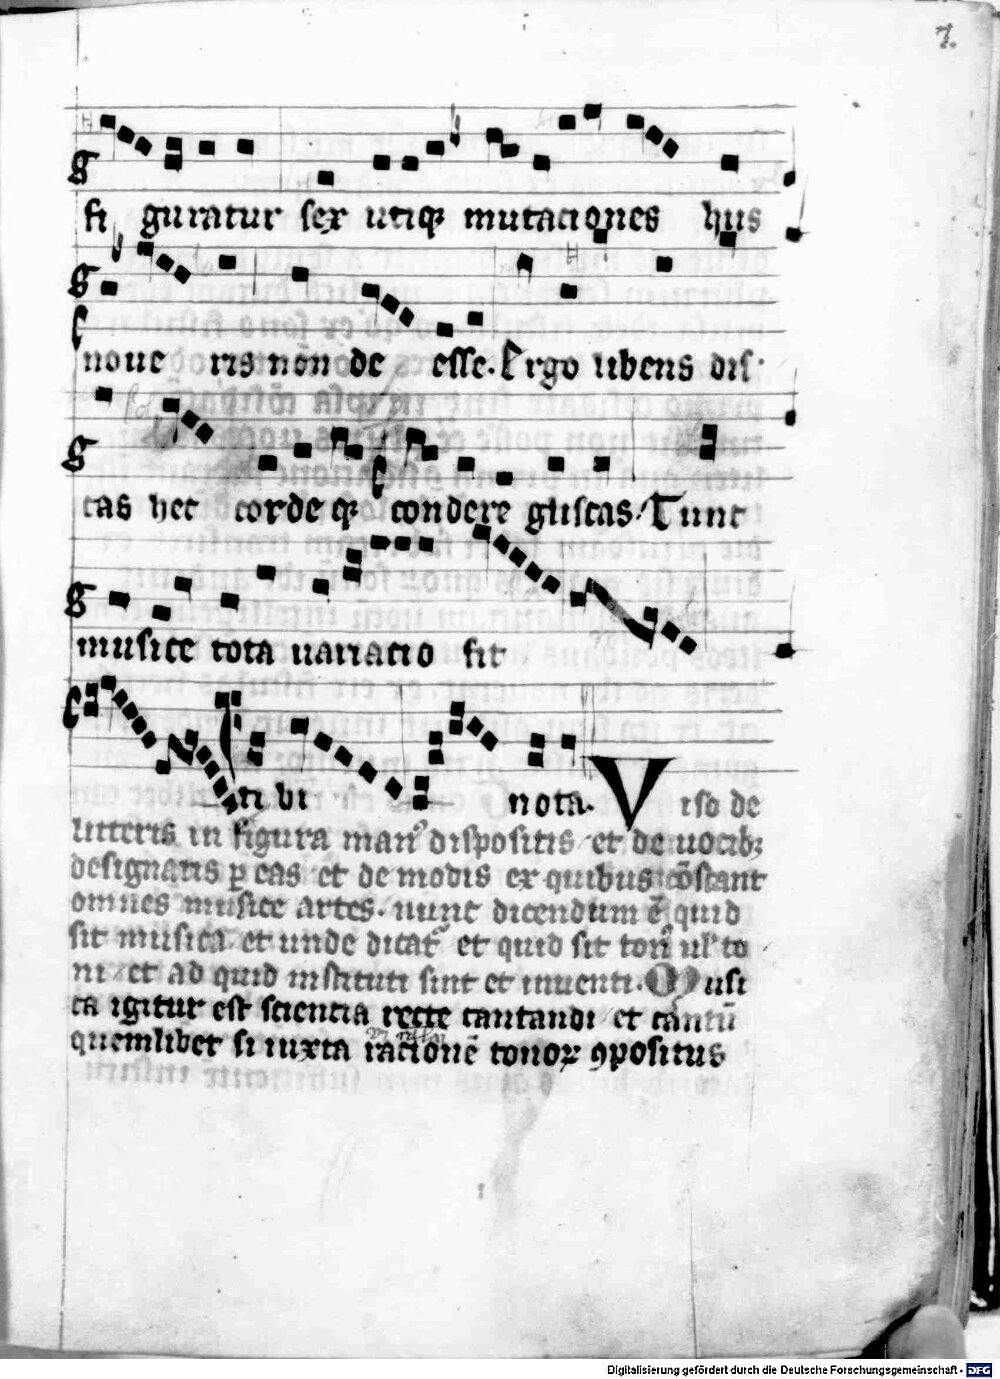 7.
fi guratur sex utiqꝫ mutaciones hiis
noue ris non de esse. Ergo libens dis
cas hec corde qꝫ condere gliscas. Tunc
musice tota uariatio fit
ti bi nota. Viso de
litteris in figura manꝰ dispositis et de uocibꝫ
designatis ꝑ eas et de modis ex quibus cōstant
omnes musice artes. nunc dicendum ē quid
sit musica et unde dicat᷑ et quid sit tonꝰ ul' to
ni et ad quid instituti sint et inuenti. Musi
ca igitur est scientia recte cantandi et cantū
quemlibet si iuxta racionē tonoꝝ ꝯpositus
Digitalisierung gefördert durch die Deutsche Forschungsgemeinschaft - DFG